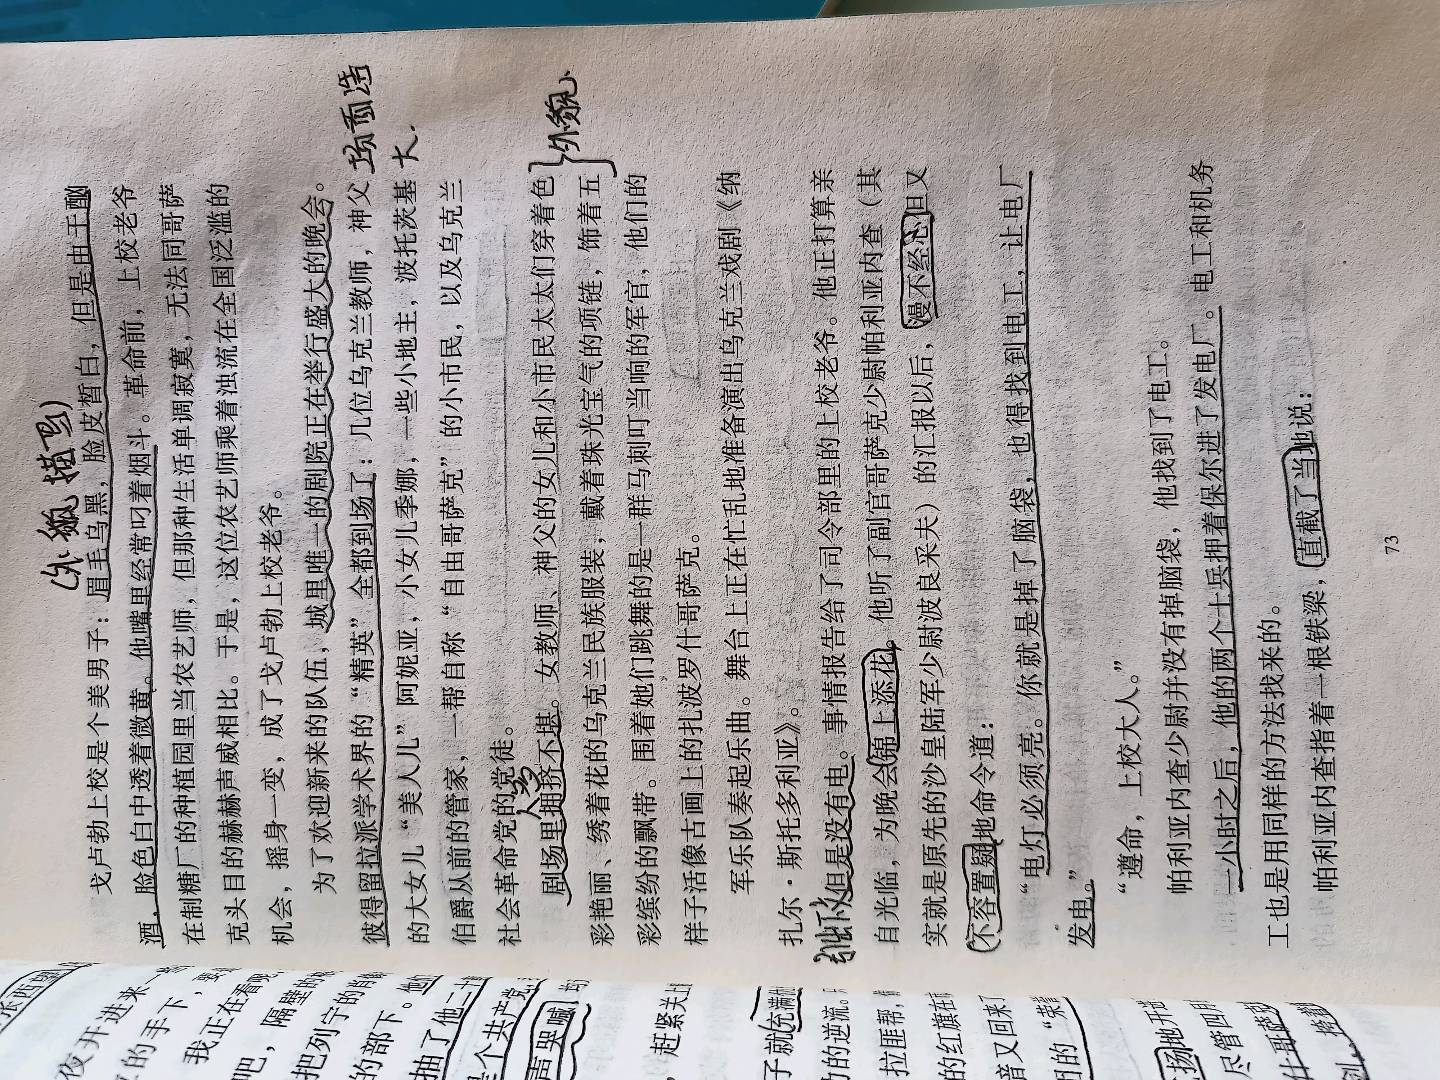 (外貌描写)
戈卢勃上校是个美男子：眉毛乌黑，脸皮皙白，但是由于酗
酒，脸色白中透着微黄。他嘴里经常叼着烟斗。革命前，上校老爷
在制糖厂的种植园里当农艺师，但那种生活单调寂寞，无法同哥萨
克头目的赫赫声威相比。于是，这位农艺师乘着浊流在全国泛滥的
机会，摇身一变，成了戈卢勃上校老爷。
为了欢迎新来的队伍，城里唯一的剧院正在举行盛大的晚会。
场面浩
大.
彼得留拉派学术界的“精英”全都到场了：几位乌克兰教师，神父
的大女儿“美人儿”阿妮亚，小女儿季娜，一些小地主，波托茨基
伯爵从前的管家，一帮自称“自由哥萨克”的小市民，以及乌克兰
社会革命党的党徒。
人多
剧场里拥挤不堪。女教师、神父的女儿和小市民太太们穿着色
外貌
彩艳丽、绣着花的乌克兰民族服装，戴着珠光宝气的项链，饰着五
彩缤纷的飘带。围着她们跳舞的是一群马刺叮当响的军官，他们的
样子活像古画上的扎波罗什哥萨克。
军乐队奏起乐曲。舞台上正在忙乱地准备演出乌克兰戏剧《纳
扎尔·斯托多利亚》。
引出下文
但是没有电。事情报告给了司令部里的上校老爷。他正打算亲
自光临，为晚会锦上添花。他听了副官哥萨克少尉帕利亚内查（其
实就是原先的沙皇陆军少尉波良采夫）的汇报以后，漫不经心但又
不容置疑地命令道：
“电灯必须亮。你就是掉了脑袋，也得找到电工，让电厂
发电。”
“遵命，上校大人。”
帕利亚内查少尉并没有掉脑袋，他找到了电工。
一小时之后，他的两个士兵拥着保尔进了发电厂。电工和机务
工也是用同样的方法找来的。
帕利亚内查指着一根铁梁，直截了当地说：
73